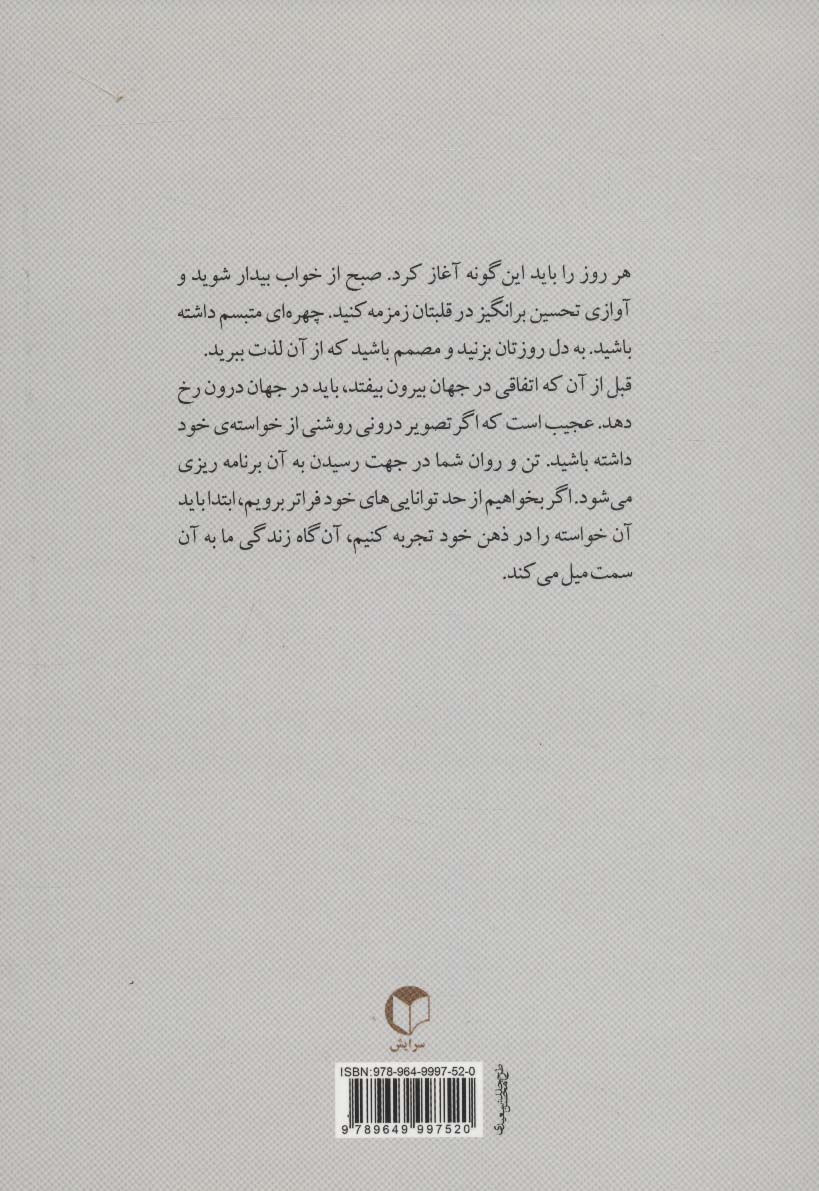 هر روز را باید این‌گونه آغاز کرد. صبح از خواب بیدار شوید و
آوازی تحسین برانگیز در قلبتان زمزمه کنید. چهره‌ای متبسم داشته
باشید. به دل روزتان بزنید و مصمم باشید که از آن لذت ببرید.
قبل از آن که اتفاقی در جهان بیرون بیفتد، باید در جهان درون رخ
دهد. عجیب است که اگر تصویر درونی روشنی از خواسته‌ی خود
داشته باشید. تن و روان شما در جهت رسیدن به آن برنامه ریزی
می‌شود. اگر بخواهیم از حد توانایی‌های خود فراتر برویم، ابتدا باید
آن خواسته را در ذهن خود تجربه کنیم، آن‌گاه زندگی ما به آن
سمت میل می‌کند.
سرایش
ISBN:978-964-9997-52-0
9 789649 997520
طرح جلد:
سعیدی